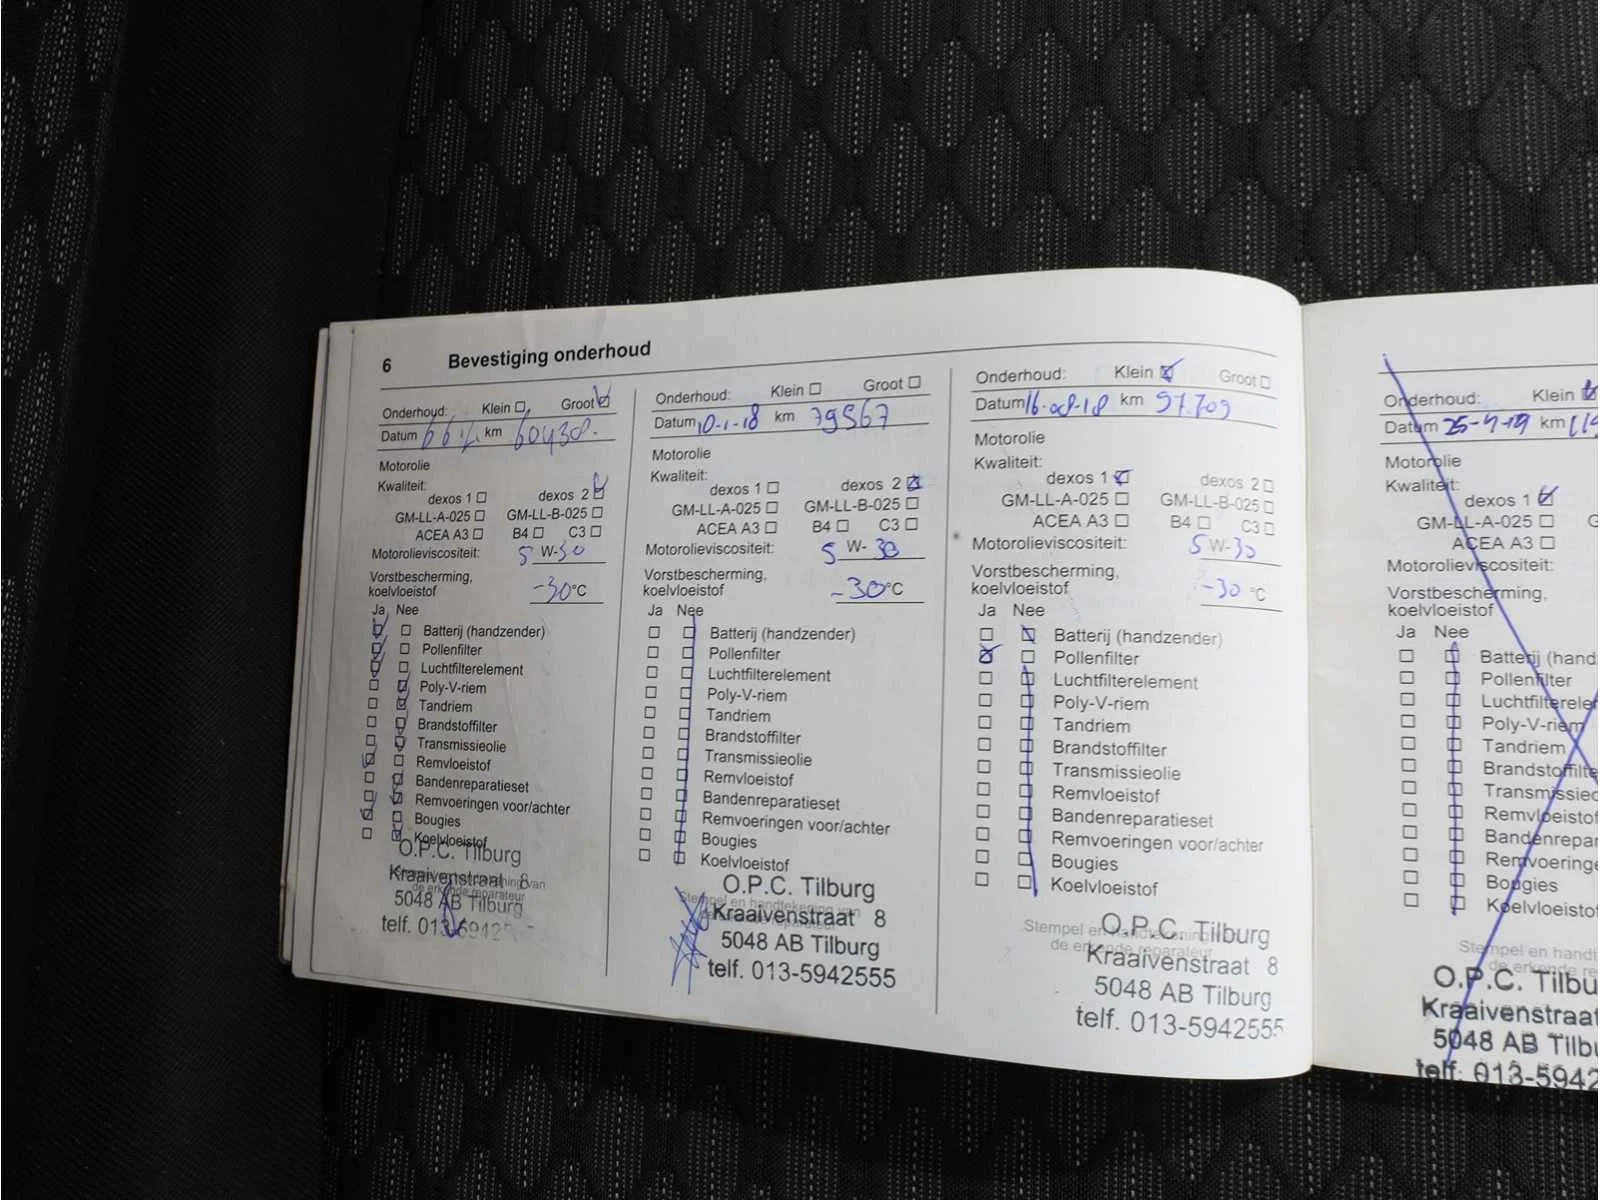 6 Bevestiging onderhoud
Onderhoud: Klein Groot
Datum km 60430.
Motorolie
Kwaliteit:
dexos 1 dexos 2
GM-LL-A-025 GM-LL-B-025
ACEA A3 B4 C3
Motorolieviscositeit: 5 W-30
Vorstbescherming,
koelvloeistof -30°C
Ja Nee
Batterij (handzender)
Pollenfilter
Luchtfilterelement
Poly-V-riem
Tandriem
Brandstoffilter
Transmissieolie
Remvloeistof
Bandenreparatieset
Remvoeringen voor/achter
Bougies
Koelvloeistof
O.P.C. Tilburg
Kraaivenstraat 8
5048 AB Tilburg
telf. 013-5942
Onderhoud: Klein Groot
Datum 10-1-18 km 79567
Motorolie
Kwaliteit:
dexos 1 dexos 2
GM-LL-A-025 GM-LL-B-025
ACEA A3 B4 C3
Motorolieviscositeit: 5 W-30
Vorstbescherming,
koelvloeistof -30°C
Ja Nee
Batterij (handzender)
Pollenfilter
Luchtfilterelement
Poly-V-riem
Tandriem
Brandstoffilter
Transmissieolie
Remvloeistof
Bandenreparatieset
Remvoeringen voor/achter
Bougies
Koelvloeistof
Stempel en handtekening van
O.P.C. Tilburg
Kraaivenstraat 8
5048 AB Tilburg
telf. 013-5942555
Onderhoud: Klein Groot
Datum 16-08-18 km 97.709
Motorolie
Kwaliteit:
dexos 1 dexos 2
GM-LL-A-025 GM-LL-B-025
ACEA A3 B4 C3
Motorolieviscositeit: 5 W-30
Vorstbescherming,
koelvloeistof -30 °C
Ja Nee
Batterij (handzender)
Pollenfilter
Luchtfilterelement
Poly-V-riem
Tandriem
Brandstoffilter
Transmissieolie
Remvloeistof
Bandenreparatieset
Remvoeringen voor/achter
Bougies
Koelvloeistof
Stempel en handtekening van
de erkende reparateur
O.P.C. Tilburg
Kraaivenstraat 8
5048 AB Tilburg
telf. 013-5942555
Onderhoud: Klein
Datum 25-4-19 km
Motorolie
Kwaliteit:
dexos 1
GM-LL-A-025 G
ACEA A3
Motorolieviscositeit:
Vorstbescherming,
koelvloeistof
Ja Nee
Batterij (hand
Pollenfilter
Luchtfilterele
Poly-V-riem
Tandriem
Brandstoffilte
Transmissieo
Remvloeistof
Bandenrepar
Remvoeringe
Bougies
Koelvloeisto
Stempel en handt
de erkende re
O.P.C. Tilbu
Kraaivenstraat
5048 AB Tilbu
telf. 013-5942